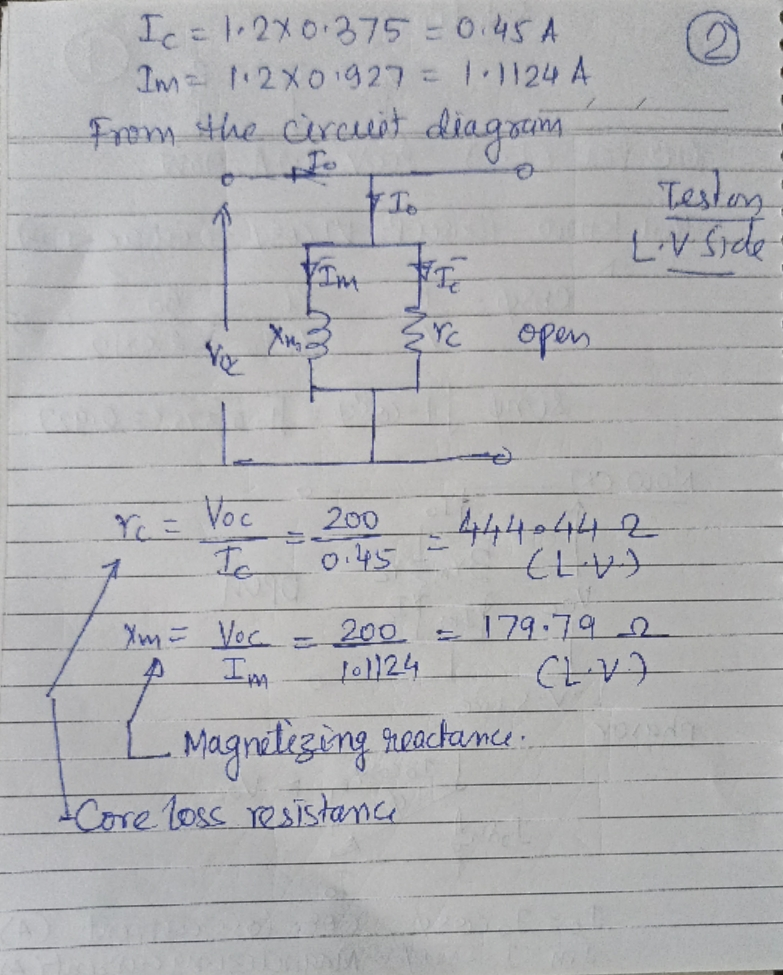 Ic = 1.2×0.375 = 0.45 A
②
Im = 1.2×0.927 = 1.1124 A
From the circuit diagram
Io
Io
Test on
L.V Side
Im
Ic
Xm
rc
open
rc = Voc/Ic = 200/0.45 = 444.44 Ω
(L.V)
Xm = Voc/Im = 200/1.1124 = 179.79 Ω
(L.V)
Magnetizing reactance.
Core loss resistance